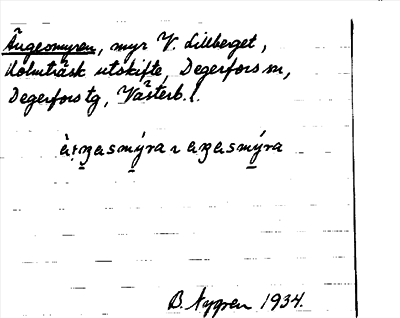 Ängesmyren, myr V. Lillberget,
Holmträsk utskifte, Degerfors sn,
Degerfors tg, Västerb. l.
B. Nygren 1934.